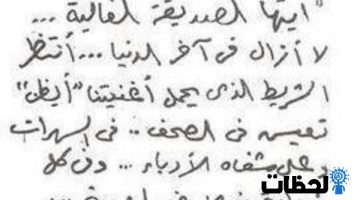 "أيتها الصديقة الغالية ...
لا أزال في آخر الدنيا ... أنتظر
الشريط الذي يحمل أغنيتنا "أيظن"
تعيسه في الصحف .. في السهرات
على شفاه الأدباء ... وفي كل
لحظات